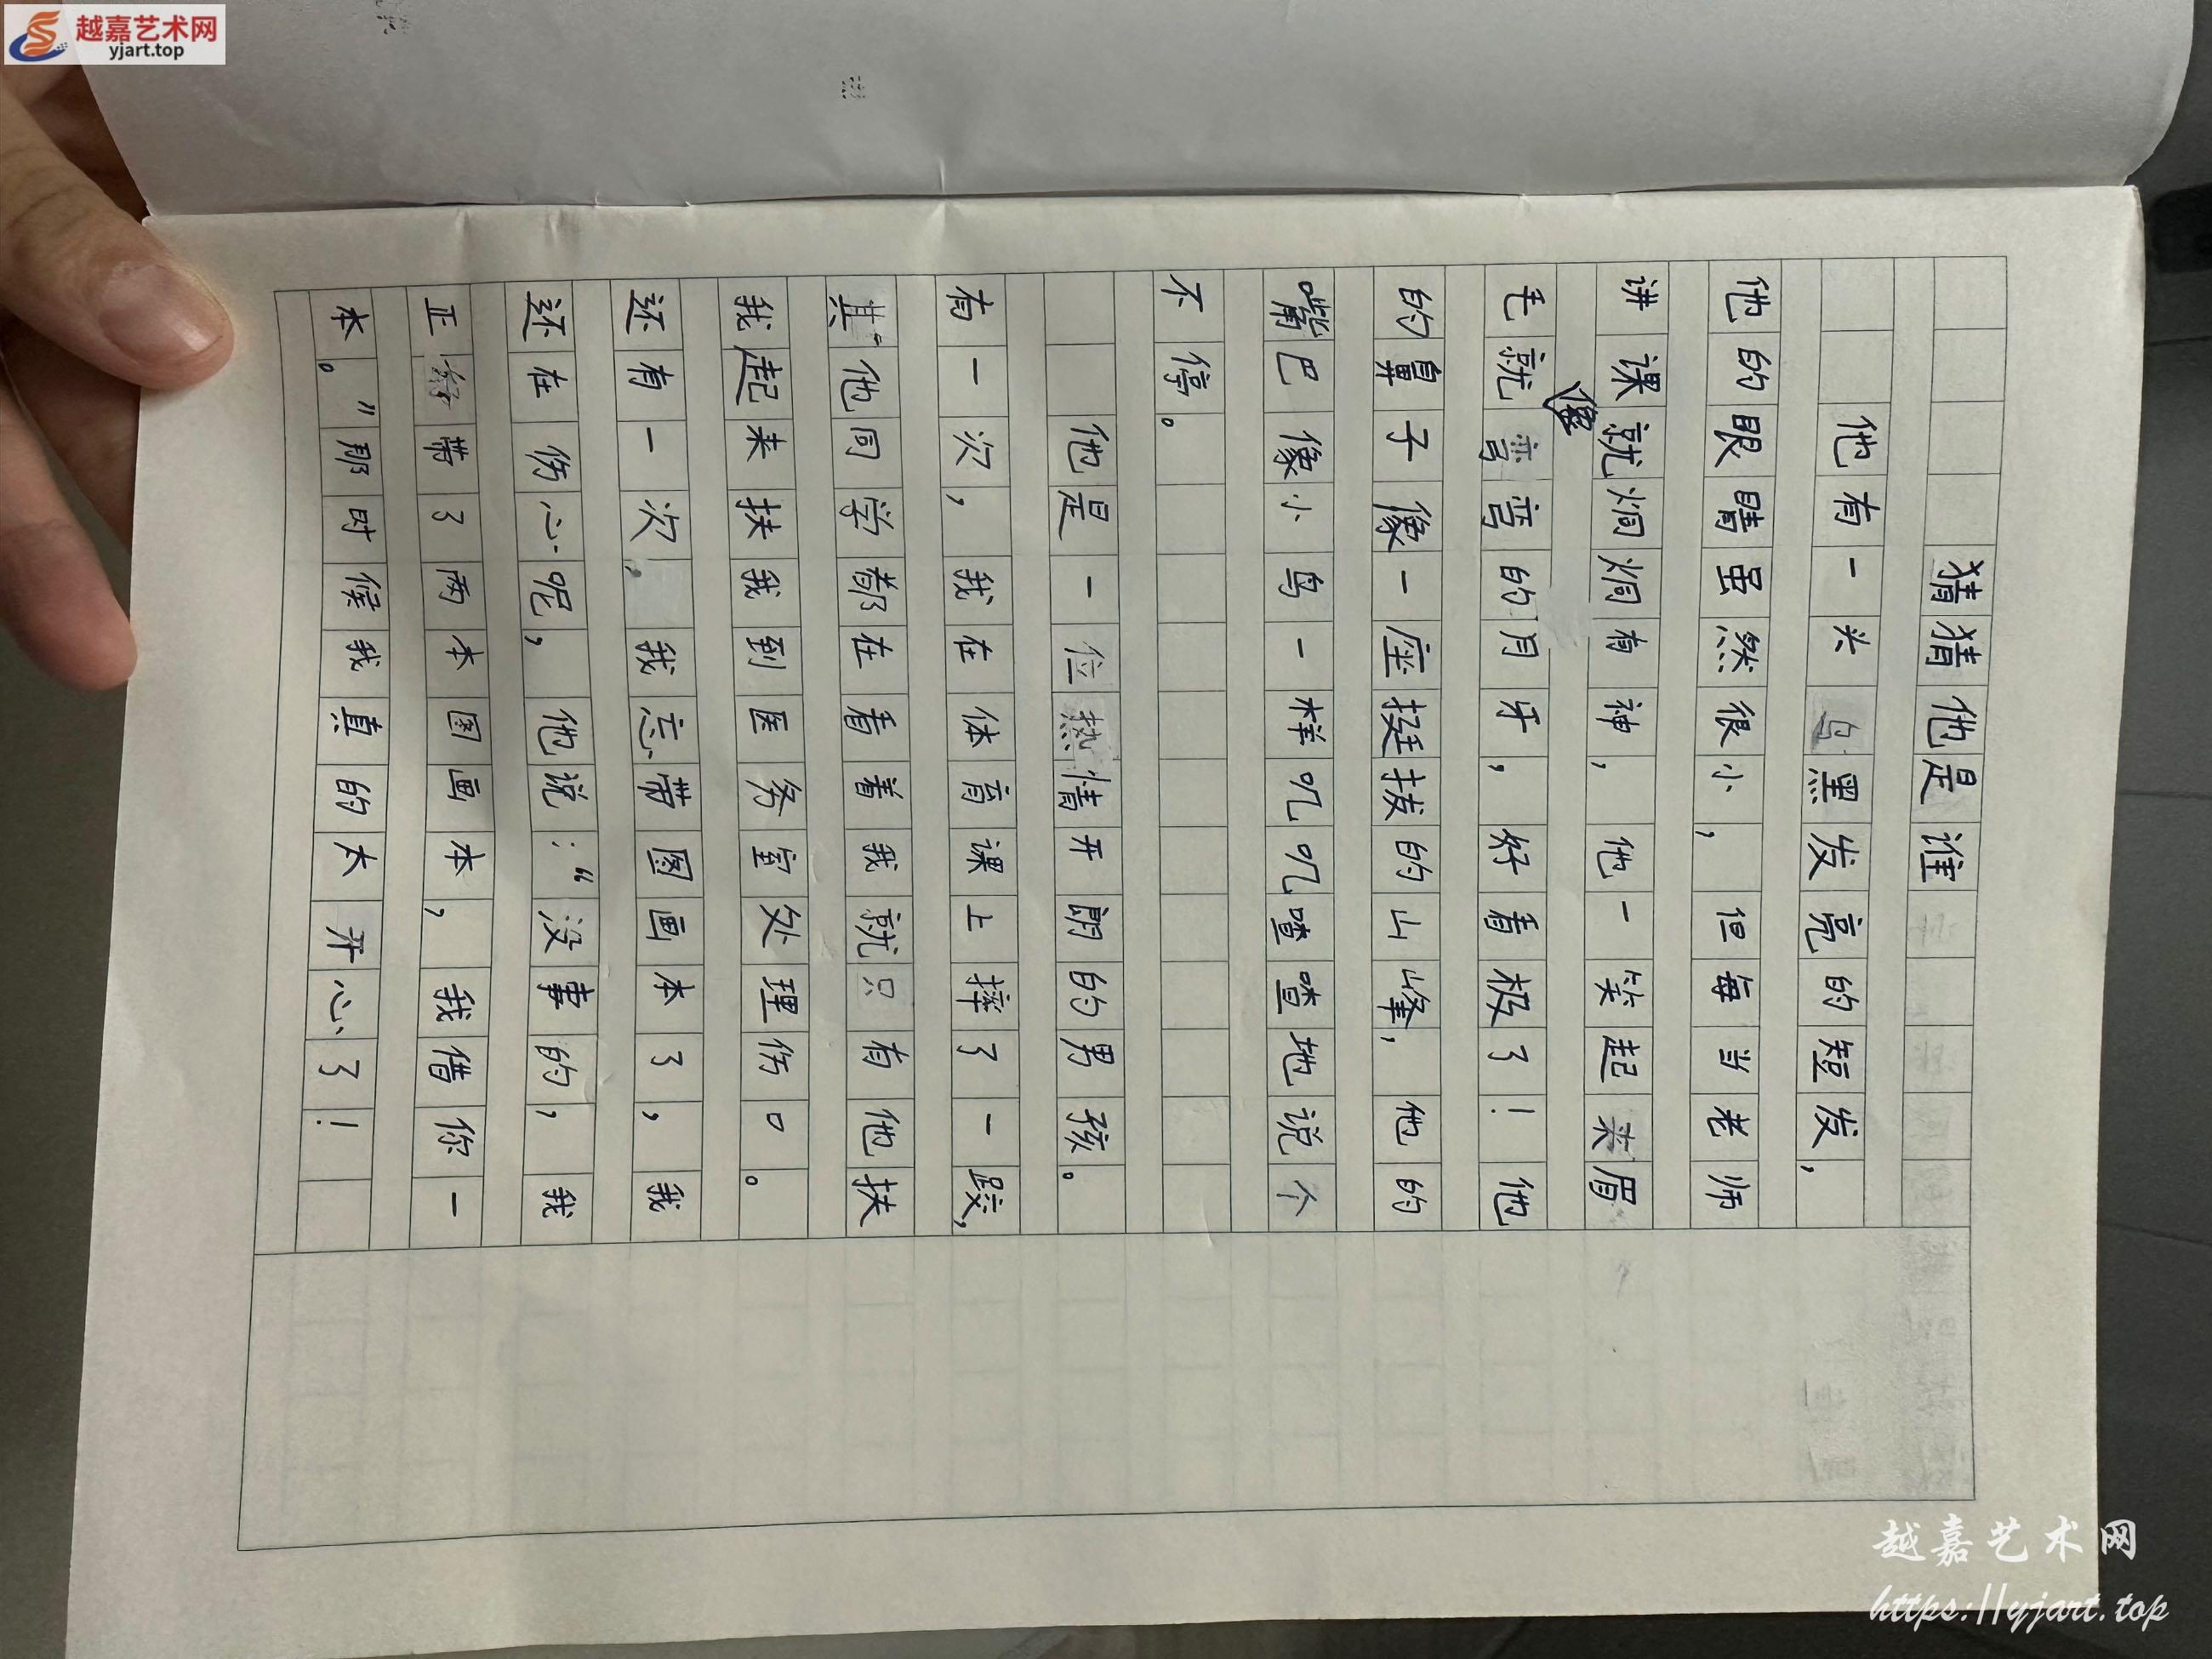 越嘉艺术网
yjart.top
猜猜他是谁
他有一头乌黑发亮的短发，
他的眼睛虽然很小，但每当老师
讲课就炯炯有神，他一笑起来眉
毛就像弯弯的月牙，好看极了！他
的鼻子像一座挺拔的山峰，他的
嘴巴像小鸟一样叽叽喳喳地说个
不停。
他是一位热情开朗的男孩。
有一次，我在体育课上摔了一跤，
其他同学都在看着我就只有他扶
我起来扶我到医务室处理伤口。
还有一次，我忘带图画本了，我
还在伤心呢，他说：“没事的，我
正好带了两本图画本，我借你一
本。”那时候我真的太开心了！
越嘉艺术网
https://yjart.top